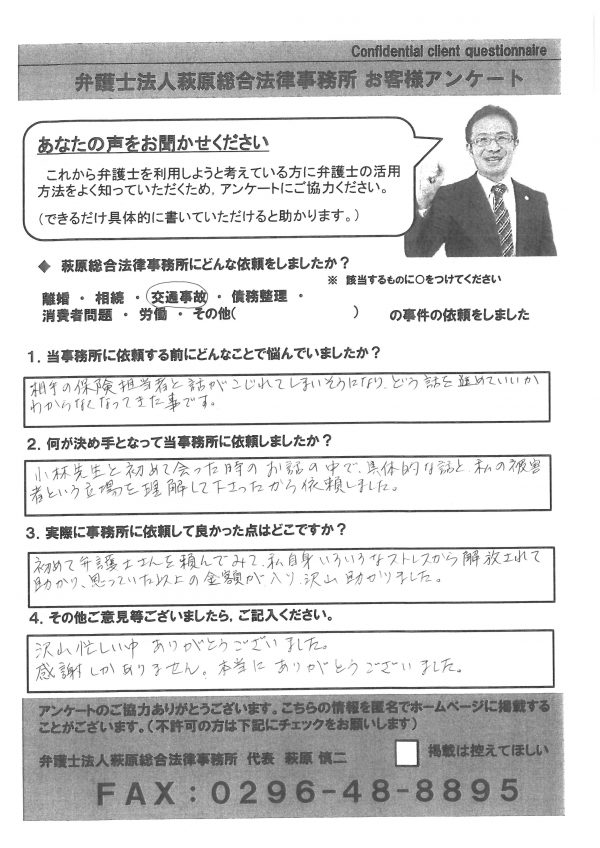 Confidential client questionnaire
弁護士法人萩原総合法律事務所 お客様アンケート
あなたの声をお聞かせください
これから弁護士を利用しようと考えている方に弁護士の活用
方法をよく知っていただくため，アンケートにご協力ください。
(できるだけ具体的に書いていただけると助かります。)
◆ 萩原総合法律事務所にどんな依頼をしましたか？
※ 該当するものに○をつけてください
離婚 ・ 相続 ・ 交通事故 ・ 債務整理 ・
消費者問題 ・ 労働 ・ その他( ) の事件の依頼をしました
1．当事務所に依頼する前にどんなことで悩んでいましたか？
相手の保険担当者と話がこじれてしまいそうになり、どう話を進めていいか
わからなくなってきた事です。
2．何が決め手となって当事務所に依頼しましたか？
小林先生と初めて会った時のお話の中で、具体的な話と、私の被害
者という立場を理解して下さったから依頼しました。
3．実際に事務所に依頼して良かった点はどこですか？
初めて弁護士さんを頼んでみて、私自身いろいろなストレスから解放されて
助かり、思っていた以上の金額が入り、沢山助かりました。
4．その他ご意見等ございましたら，ご記入ください。
沢山忙しい中 ありがとうございました。
感謝しかありません。本当に ありがとうございました。
アンケートのご協力ありがとうございます。こちらの情報を匿名でホームページに掲載する
ことがございます。(不許可の方は下記にチェックをお願いします)
弁護士法人萩原総合法律事務所 代表 萩原 慎二
掲載は控えてほしい
FAX：0296-48-8895